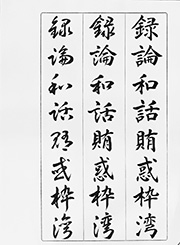 録論和話賄惑枠湾
録論和話賄惑枠湾
録論和話賄惑枠湾